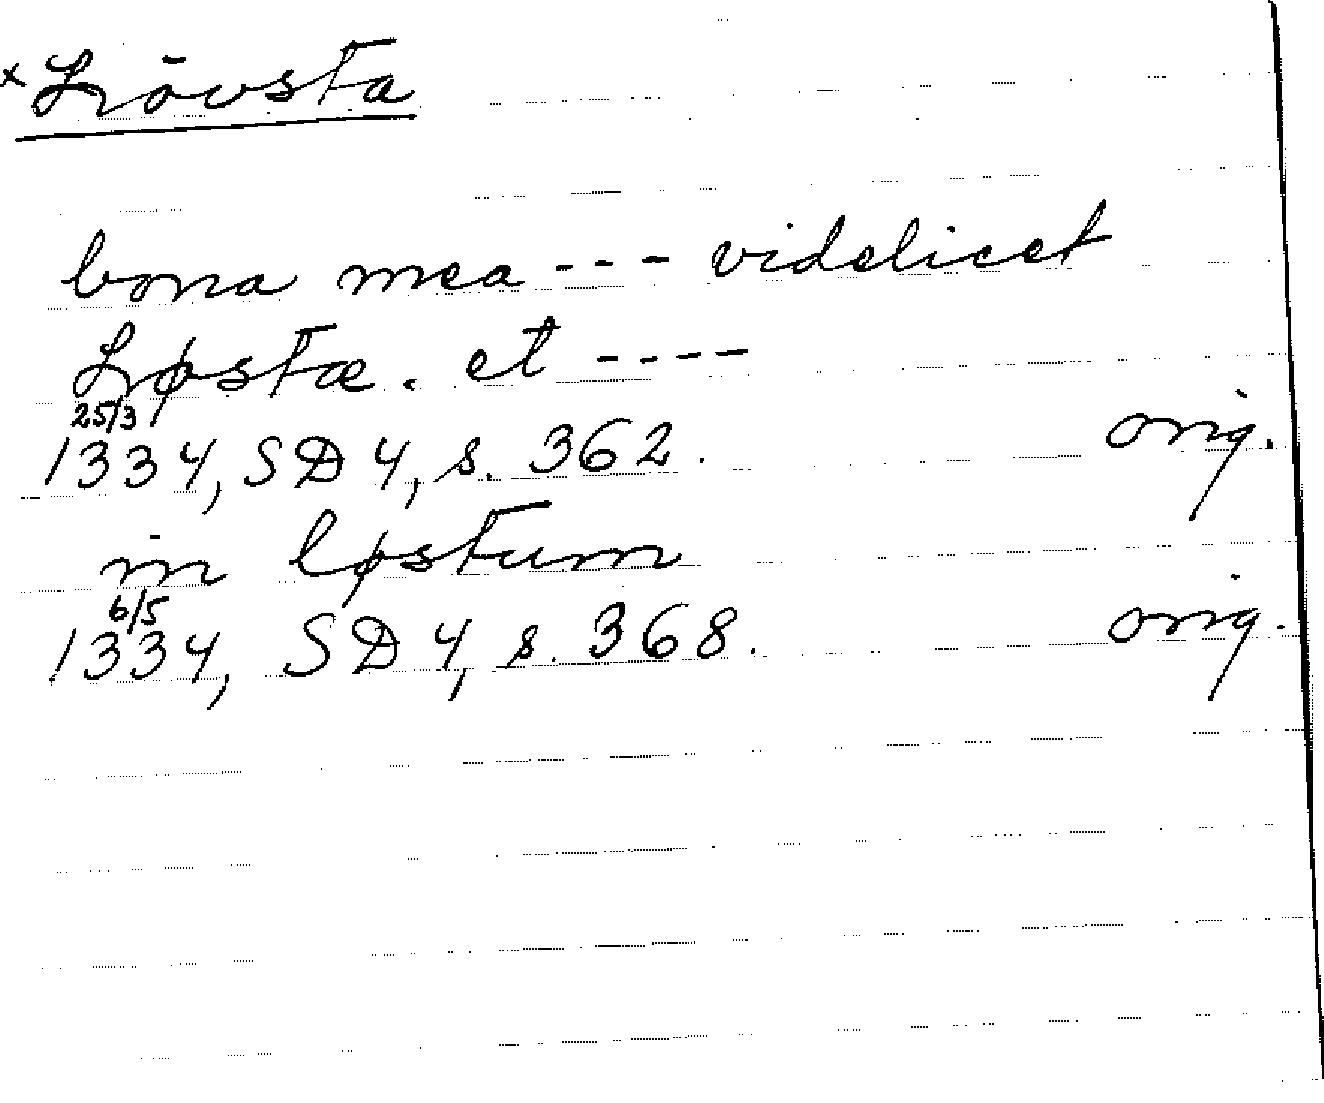 x Lövsta
bona mea --- videlicet
Løstæ. et ----
25/3
1334, SD 4, s. 362. orig.
in løstum
6/5
1334, SD 4, s. 368. orig.